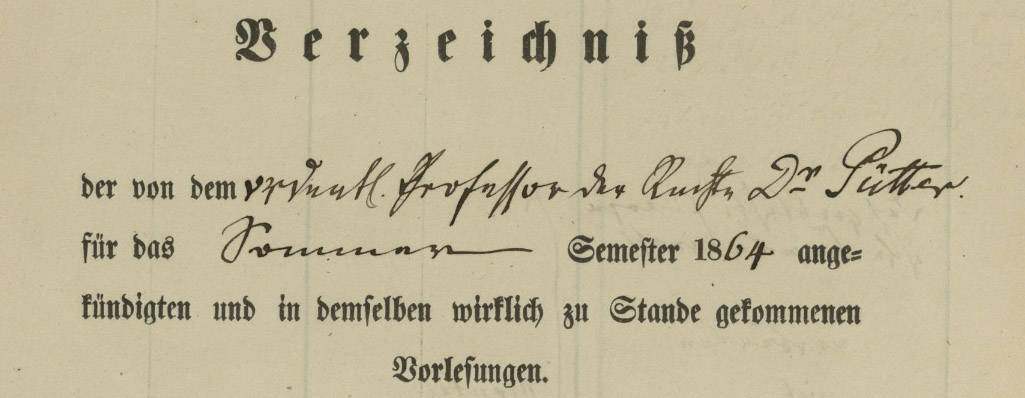 Verzeichniß
der von dem ordentl. Professor der Rechte Dr Pütter.
für das Sommer Semester 1864 ange=
kündigten und in demselben wirklich zu Stande gekommenen
Vorlesungen.